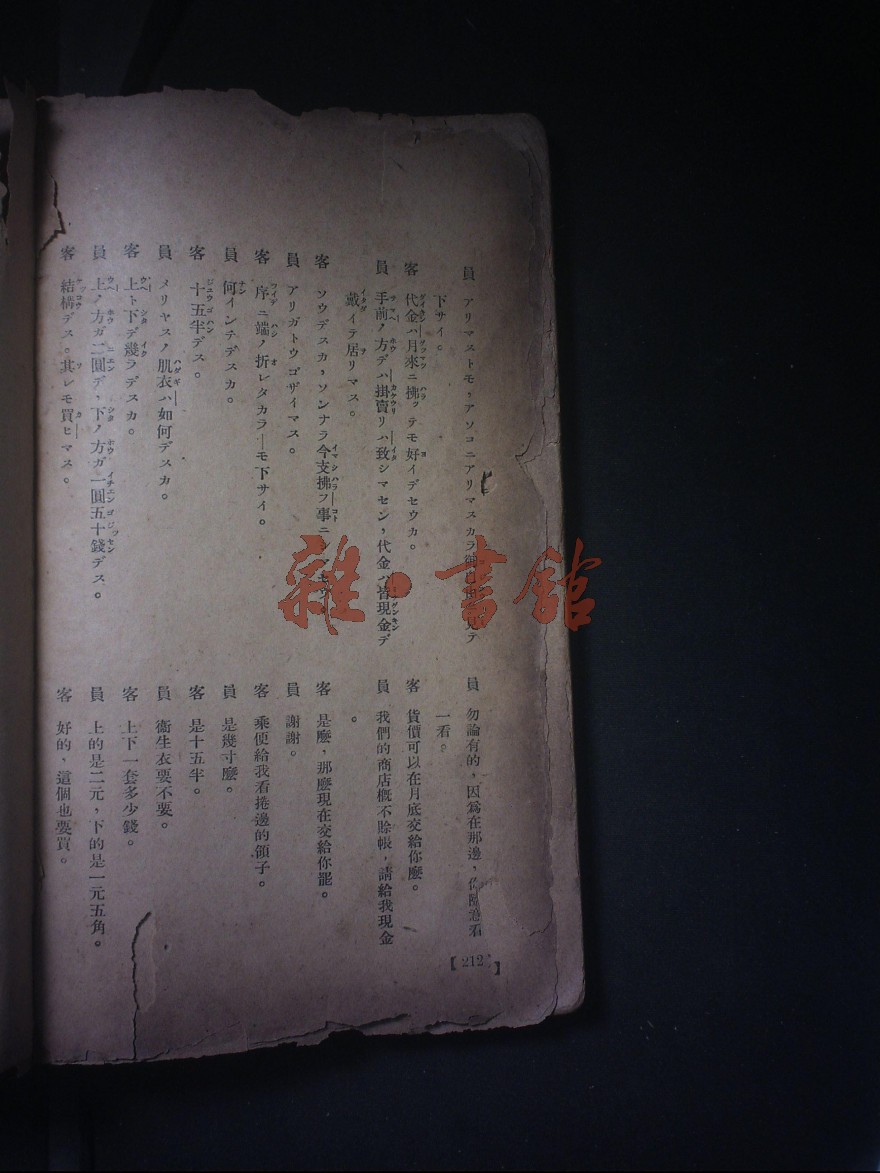 員　アリマストモ，アソコニアリマスカラ御
下サイ。
客　代金ハ月來ニ拂ッテモ好イデセウカ。
員　手前ノ方デハ掛賣リハ致シマセン，代金ハ皆現金デ
戴イテ居リマス。
客　ソウデスカ，ソンナラ今支拂フ事ニ
員　アリガトウゴザイマス。
客　序ニ端ノ折レタカラーモ下サイ。
員　何インテデスカ。
客　十五半デス。
員　メリヤスノ肌衣ハ如何デスカ。
客　上ト下デ幾ラデスカ。
員　上ノ方ガ二圓デ，下ノ方ガ一圓五十錢デス。
客　結構デス。其レモ買ヒマス。
員　勿論有的，因爲在那邊，你隨意看
一看。
客　貨價可以在月底交給你麼。
員　我們的商店概不賒帳，請給我現金
。
客　是麼，那麼現在交給你罷。
員　謝謝。
客　乘便給我看捲邊的領子。
員　是幾寸麼。
客　是十五半。
員　衞生衣要不要。
客　上下一套多少錢。
員　上的是二元，下的是一元五角。
客　好的，這個也要買。
【212】
雜·書館